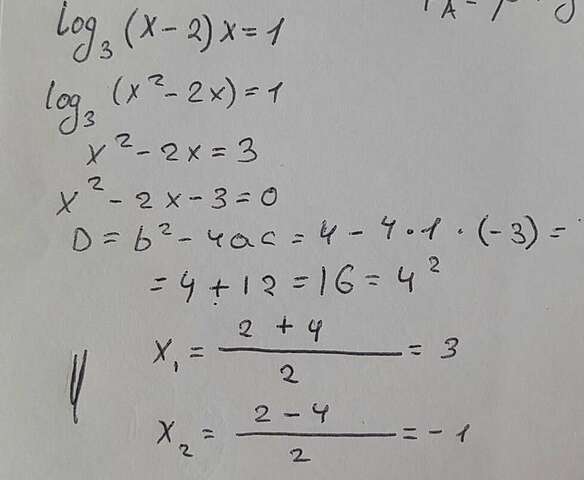 log₃ (x - 2) x = 1
log₃ (x² - 2x) = 1
x² - 2x = 3
x² - 2x - 3 = 0
D = b² - 4ac = 4 - 4 · 1 · (-3) =
= 4 + 12 = 16 = 4²
x₁ = (2 + 4)/2 = 3
x₂ = (2 - 4)/2 = -1